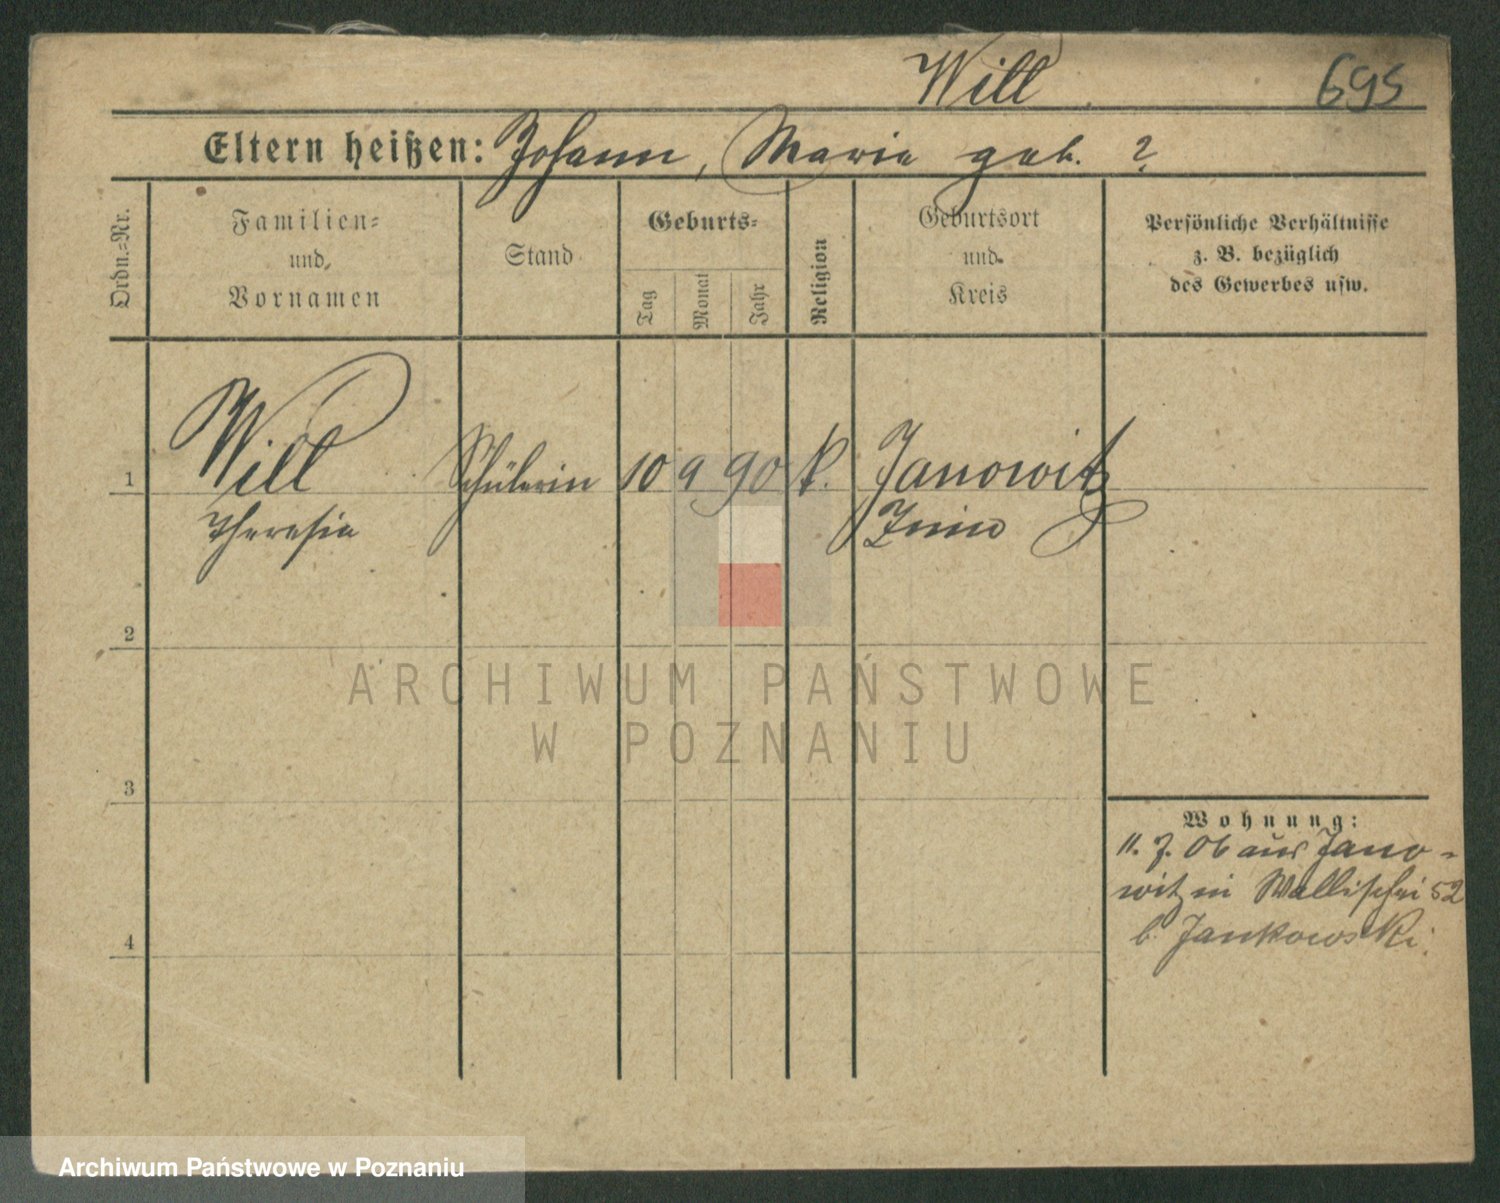 Will
695
Eltern heißen: Johann, Maria geb. ?
Ordn.-Nr.
Familien-
und
Vornamen
Stand
Geburts-
Tag
Monat
Jahr
Religion
Geburtsort
und
Kreis
Persönliche Verhältnisse
z. B. bezüglich
des Gewerbes usw.
1
Will Schülerin 10 9 90 k. Janowitz
Theresia Znin
2
ARCHIWUM PAŃSTWOWE
W POZNANIU
3
Wohnung:
11. 7. 06 aus Jano-
witz in Wallischei 52
b. Jankowski.
4
Archiwum Państwowe w Poznaniu